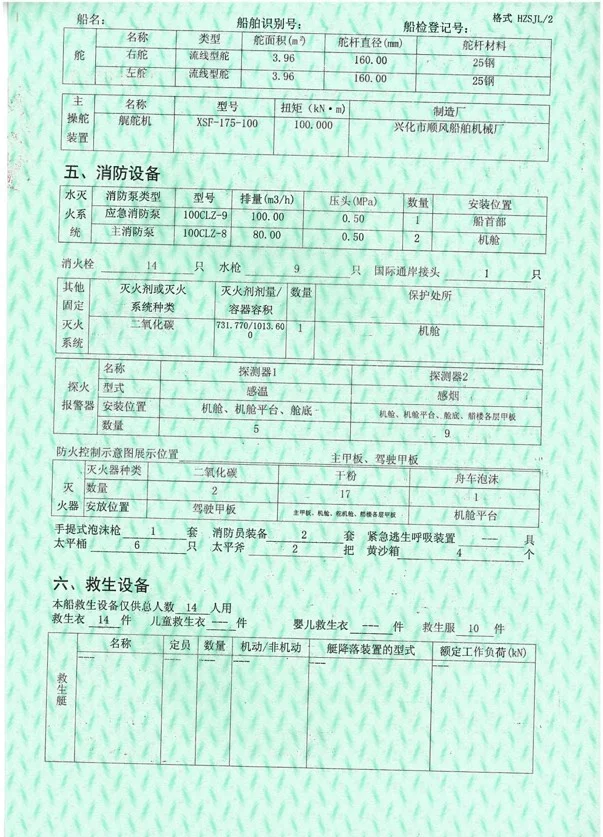 格式 HZSJL/2
船名： 船舶识别号： 船检登记号：
舵 名称 类型 舵面积(m²) 舵杆直径(mm) 舵杆材料
右舵 流线型舵 3.96 160.00 25钢
左舵 流线型舵 3.96 160.00 25钢
主操舵装置 名称 型号 扭矩（kN·m) 制造厂
舵机 XSF-175-100 100.000 兴化市顺风船舶机械厂
五、消防设备
水灭火系统 消防泵类型 型号 排量(m3/h) 压头(MPa) 数量 安装位置
应急消防泵 100CLZ-9 100.00 0.50 1 船首部
主消防泵 100CLZ-8 80.00 0.50 2 机舱
消火栓 14 只 水枪 9 只 国际通岸接头 1 只
其他固定灭火系统 灭火剂或灭火系统种类 灭火剂剂量/容器容积 数量 保护处所
二氧化碳 731.770/1013.600 1 机舱
探火报警器 名称 探测器1 探测器2
型式 感温 感烟
安装位置 机舱、机舱平台、舱底 机舱、机舱平台、舱底、艏楼各层甲板
数量 5 9
防火控制示意图展示位置 主甲板、驾驶甲板
灭火器 灭火器种类 二氧化碳 干粉 舟车泡沫
数量 2 17 1
安放位置 驾驶甲板 机舱平台
手提式泡沫枪 1 套 消防员装备 2 套 紧急逃生呼吸装置 --- 具
太平桶 6 只 太平斧 2 把 黄沙箱 4 个
六、救生设备
本船救生设备仅供总人数 14 人用
救生衣 14 件 儿童救生衣 --- 件 婴儿救生衣 --- 件 救生服 10 件
救生艇 名称 定员 数量 机动/非机动 艇降落装置的型式 额定工作负荷(kN)
--- --- --- --- --- ---